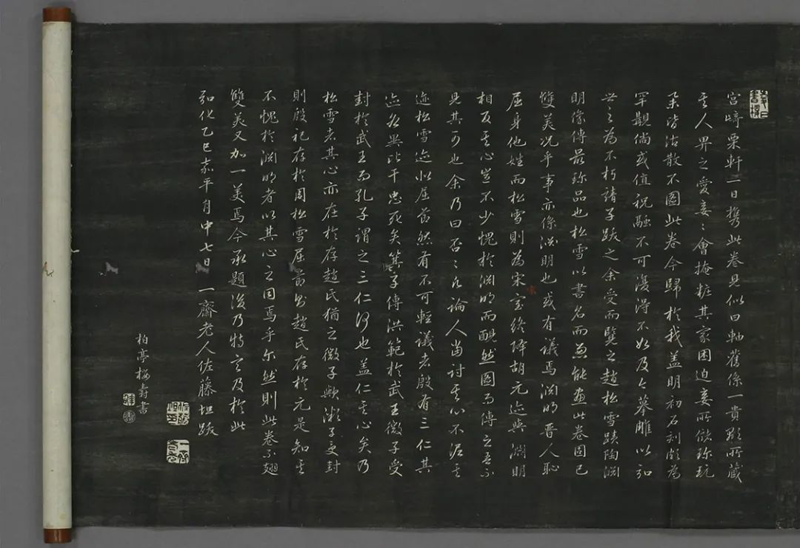 宮﨑栗軒一日携此卷見似曰軸舊係一貴顯所藏
其人畀之愛妾妾會掩粧其家困迫妾所儲珍玩
朶皆沽散不圖此卷今歸於我蓋明初名刹頗為
罕覯倘或值祝融不可復得不如及今摹雕以弘
世之為不朽請子跋之余受而覽之趙松雪蹟陶淵
明像傳最珍品也松雪以書名而兼能畫此卷固已
雙美況乎事亦係淵明也或有議焉淵明晉人恥
屈身他姓而松雪則為宋宗後降胡元迹與淵明
相反其心豈不少愧於淵明而靦然圖而傳之吾不
見其可也余乃曰否否凡論人當討其心不泥其
迹松雪迹似屈節然有不可輕議者殷有三仁其
迹各異比干忠死矣箕子傳洪範於武王微子受
封於武王而孔子謂之三仁何也蓋仁其心矣乃
松雪者其心亦在於存趙氏猶之微子歟微子受封
則殷祀存於周松雪屈節則趙氏存於元是知其
不愧於淵明者以其心之同焉乎尔然則此卷不翅
雙美又加一美焉今承題後乃特言及於此
弘化乙巳嘉平月中七日 一齋老人佐藤坦跋
柏亭 壽書